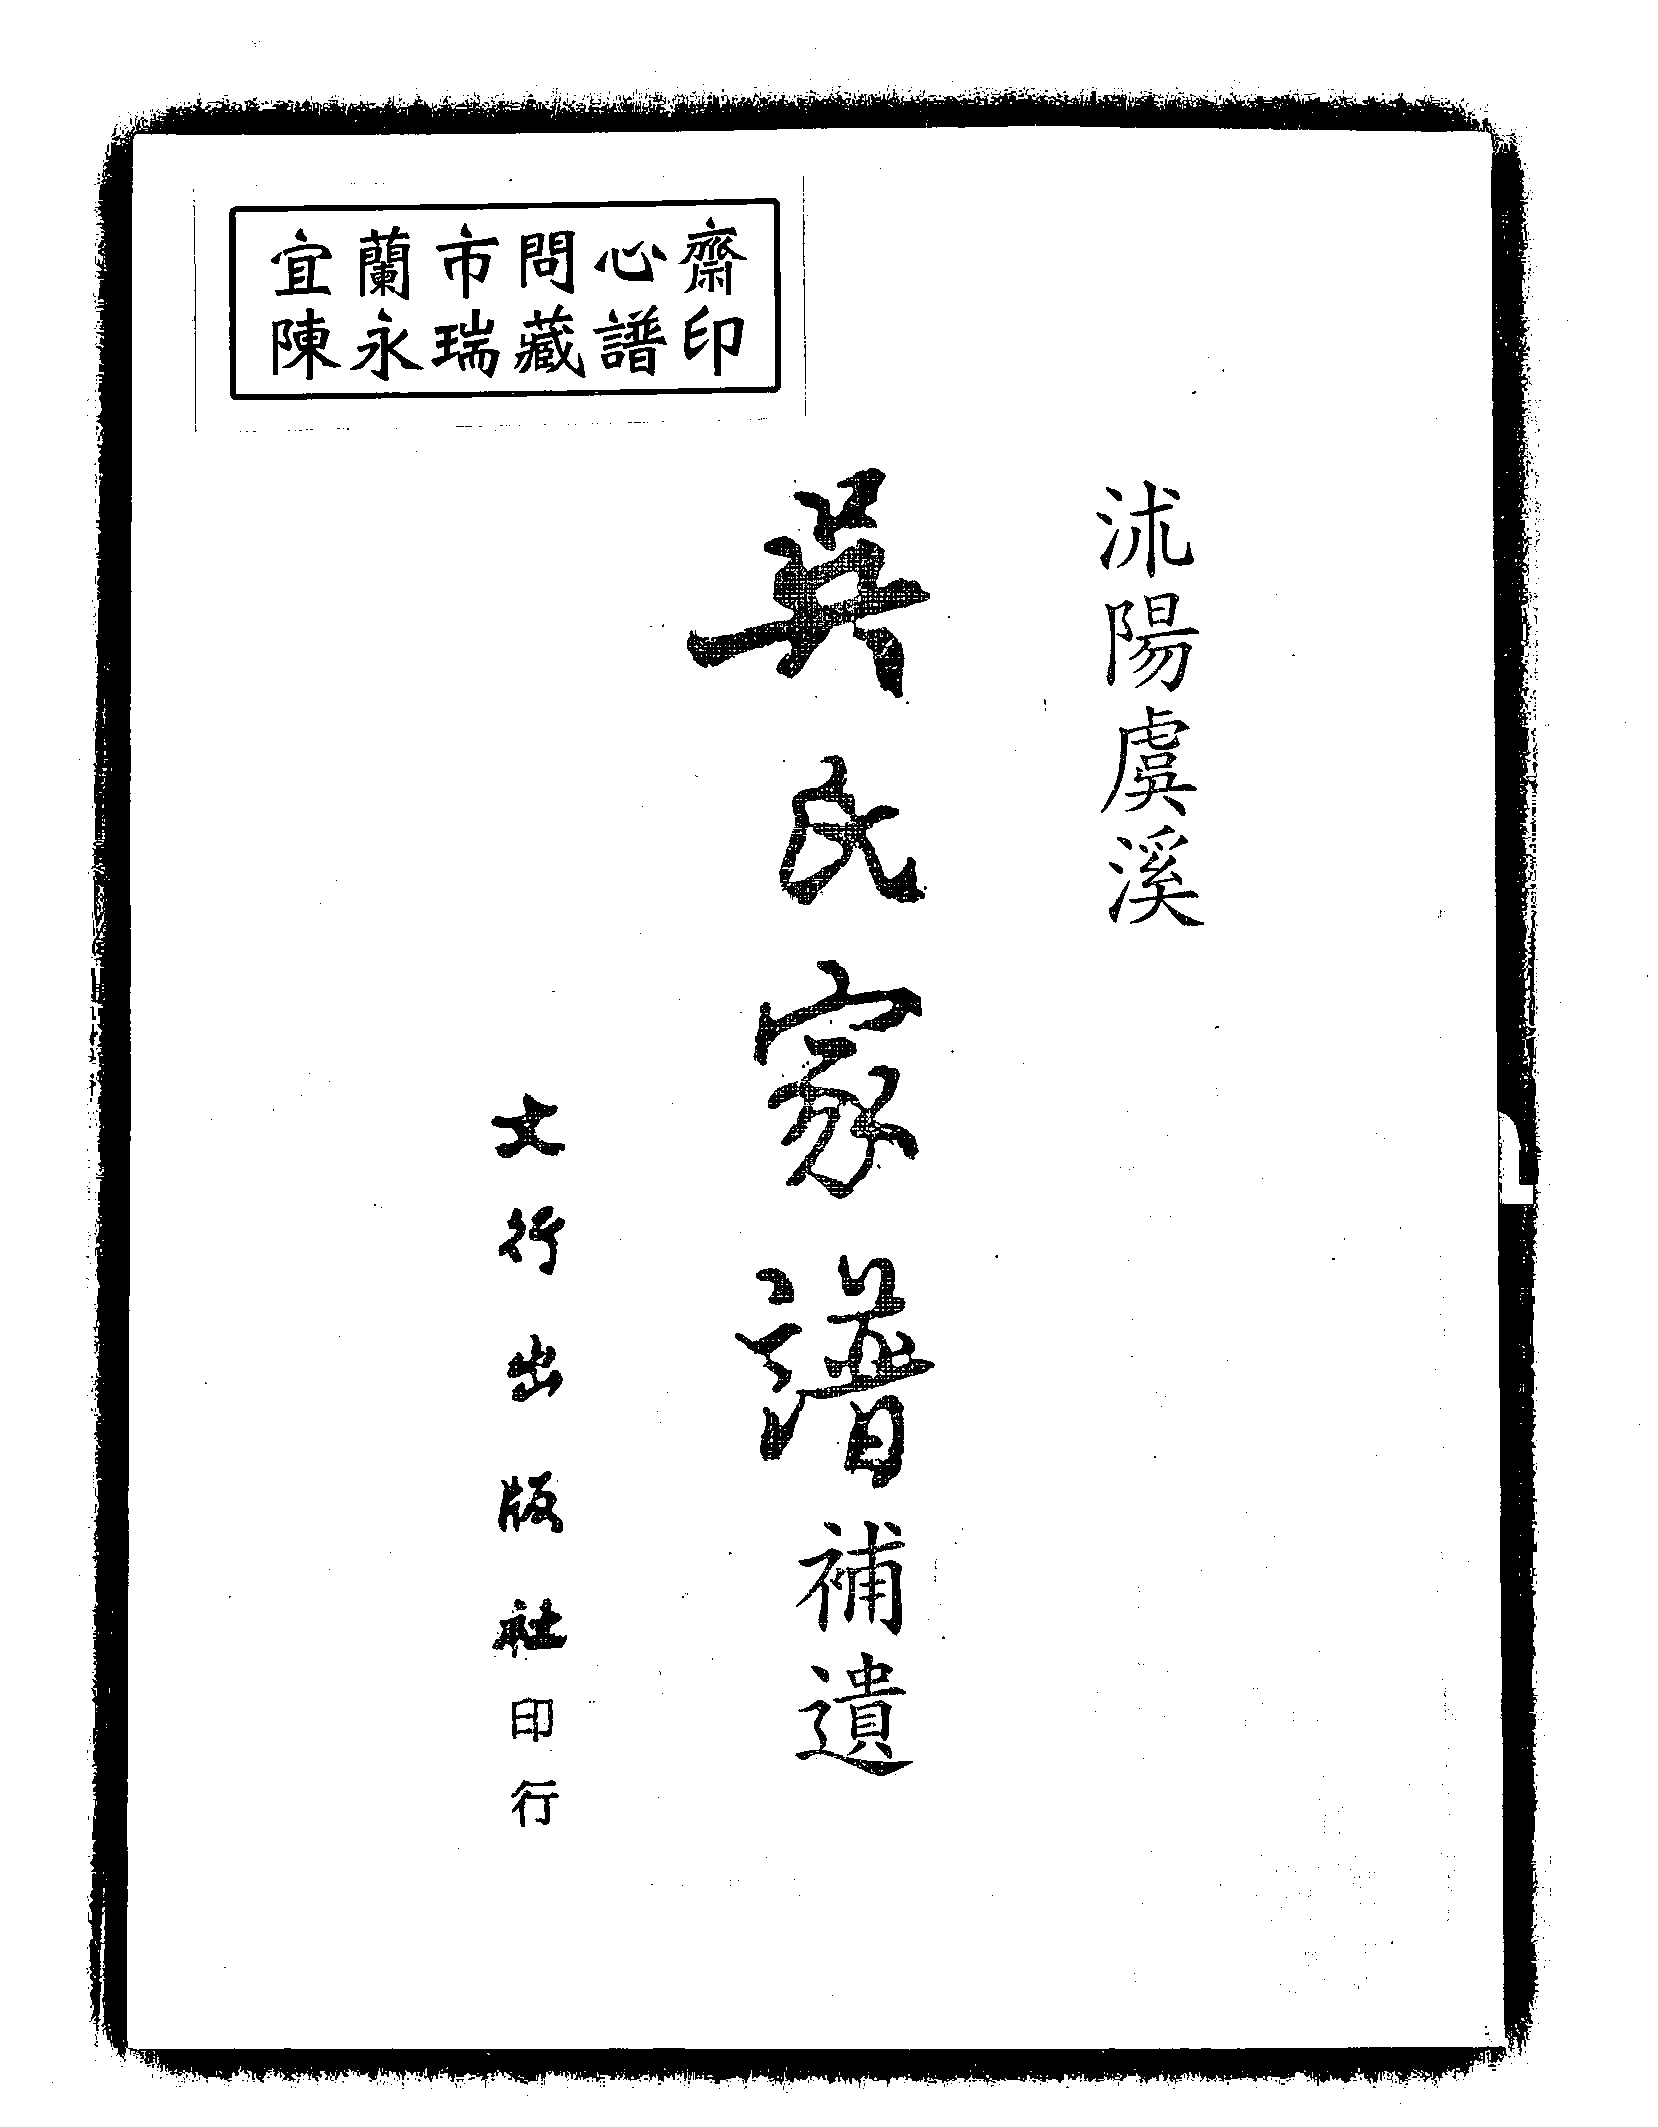 宜蘭市問心齋
陳永瑞藏譜印
沭陽虞溪
吳氏家譜補遺
文行出版社印行